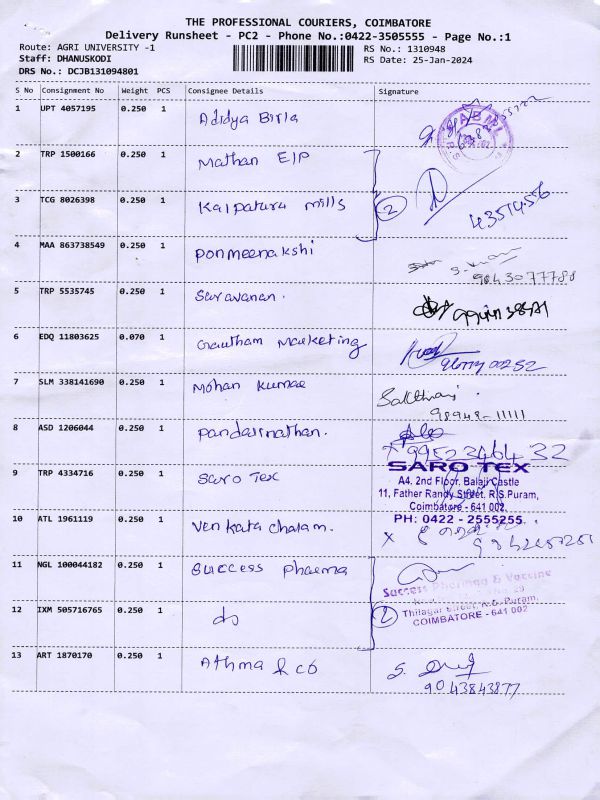 THE PROFESSIONAL COURIERS, COIMBATORE
Delivery Runsheet - PC2 - Phone No.:0422-3505555 - Page No.:1
Route: AGRI UNIVERSITY -1 RS No.: 1310948
Staff: DHANUSKODI RS Date: 25-Jan-2024
DRS No.: DCJB131094801
S No Consignment No Weight PCS Consignee Details Signature
1 UPT 4057195 0.250 1 Adidya Birla
2 TRP 1500166 0.250 1 Mathan E/P
3 TCG 8026398 0.250 1 Kalpatura mills 2 4351456
4 MAA 863738549 0.250 1 Ponmeenakshi
9843077788
5 TRP 5535745 0.250 1 Saravanan.
6 EDQ 11803625 0.070 1 Gautham Marketing
7 SLM 338141690 0.250 1 Mohan Kumar
98948-11111
8 ASD 1206044 0.250 1 Pandarinathan.
9952346432
9 TRP 4334716 0.250 1 Saro Tex
SARO TEX
A4, 2nd Floor, Balaji Castle
11, Father Randy Street, R.S.Puram,
Coimbatore - 641 002.
PH: 0422 - 2555255.
10 ATL 1961119 0.250 1 Venkatachalam.
11 NGL 100044182 0.250 1 Success pharma
Success Pharma & Vaccine
Thilagar Street, R.S. Puram,
COIMBATORE - 641 002
12 IXM 505716765 0.250 1 do 2
13 ART 1870170 0.250 1 Athma & co
9043843877